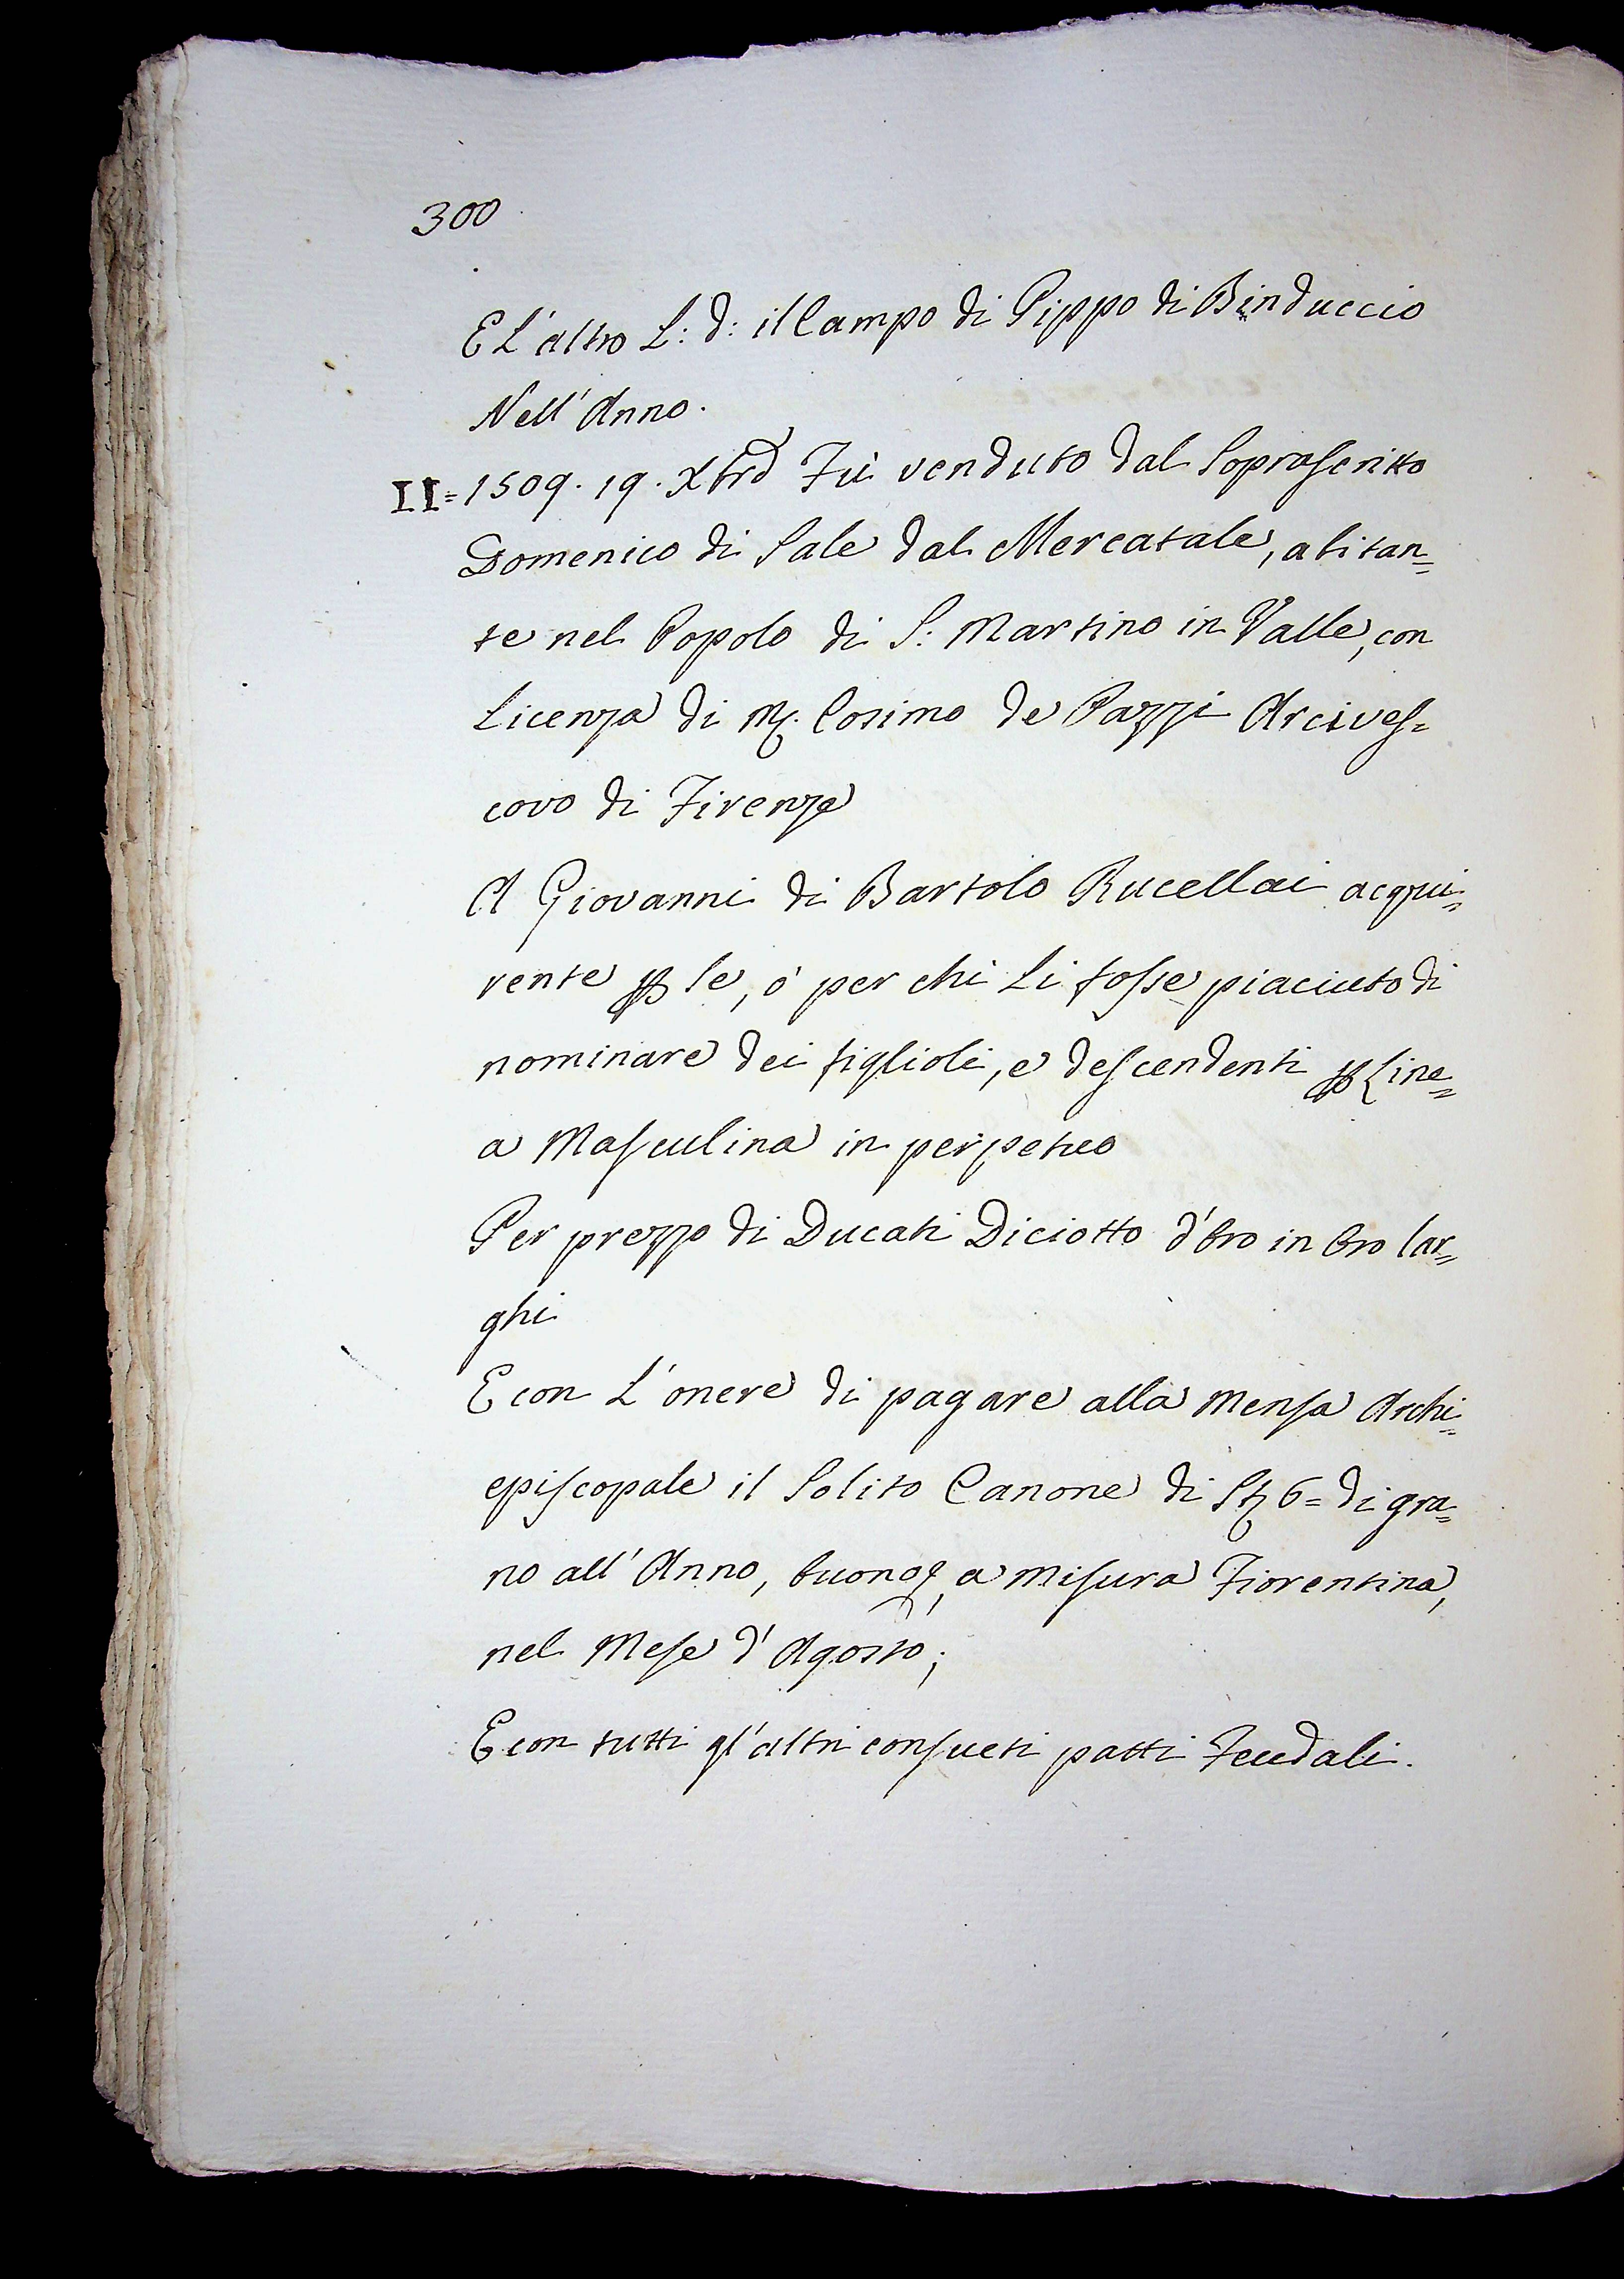 300
E L'altro L: d: il Campo di Pippo di Binduccio
Nell' Anno.
II= 1509. 19. Xbre Fù venduto dal Soprascritto
Domenico di Sale dal Mercatale, abitan=
te nel Popolo di S: Martino in Valle, con
Licenza di M. Cosimo de Pazzi Arcives=
covo di Firenze
A Giovanni di Bartolo Rucellai acqui=
rente p se, ò per chi Li fosse piaciuto di
nominare dei figlioli, e descendenti p Line=
a Masculina in perpetuo
Per prezzo di Ducati Diciotto d'Oro in Oro lar=
ghi
E con L'onere di pagare alla Mensa Archi=
episcopale il Solito Canone di St 6= di gra=
no all' Anno, buono, a misura Fiorentina,
nel Mese d' Agosto;
E con tutti gl'altri consueti patti Feudali.